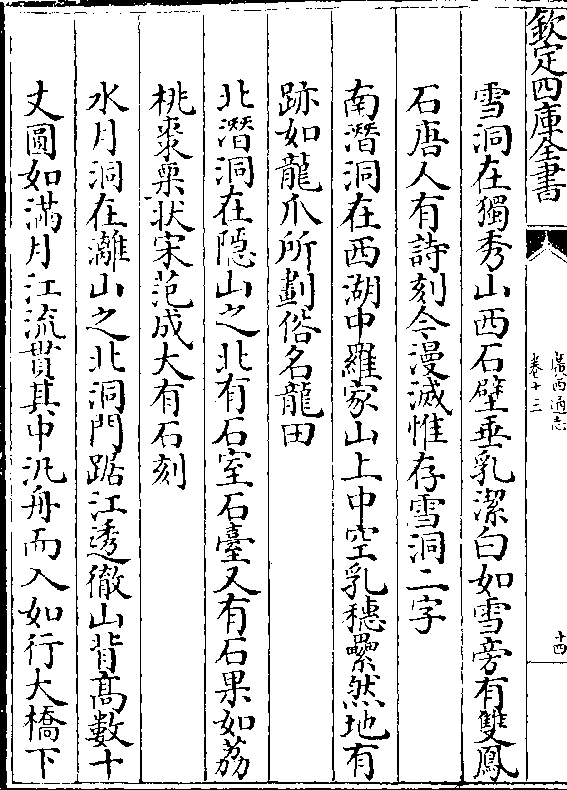 欽定四庫全書
廣西通志
卷十三
十四
雪洞在獨秀山西石壁垂乳潔白如雪旁有雙鳳
石唐人有詩刻今漫滅惟存雪洞二字
南潛洞在西湖中羅家山上中空乳穗纍然地有
跡如龍爪所劃俗名龍田
北潛洞在隱山之北有石室石臺又有石果如荔
桃棗栗狀宋范成大有石刻
水月洞在灕山之北洞門踞江透徹山背高數十
丈圓如滿月江流貫其中汎舟而入如行大橋下